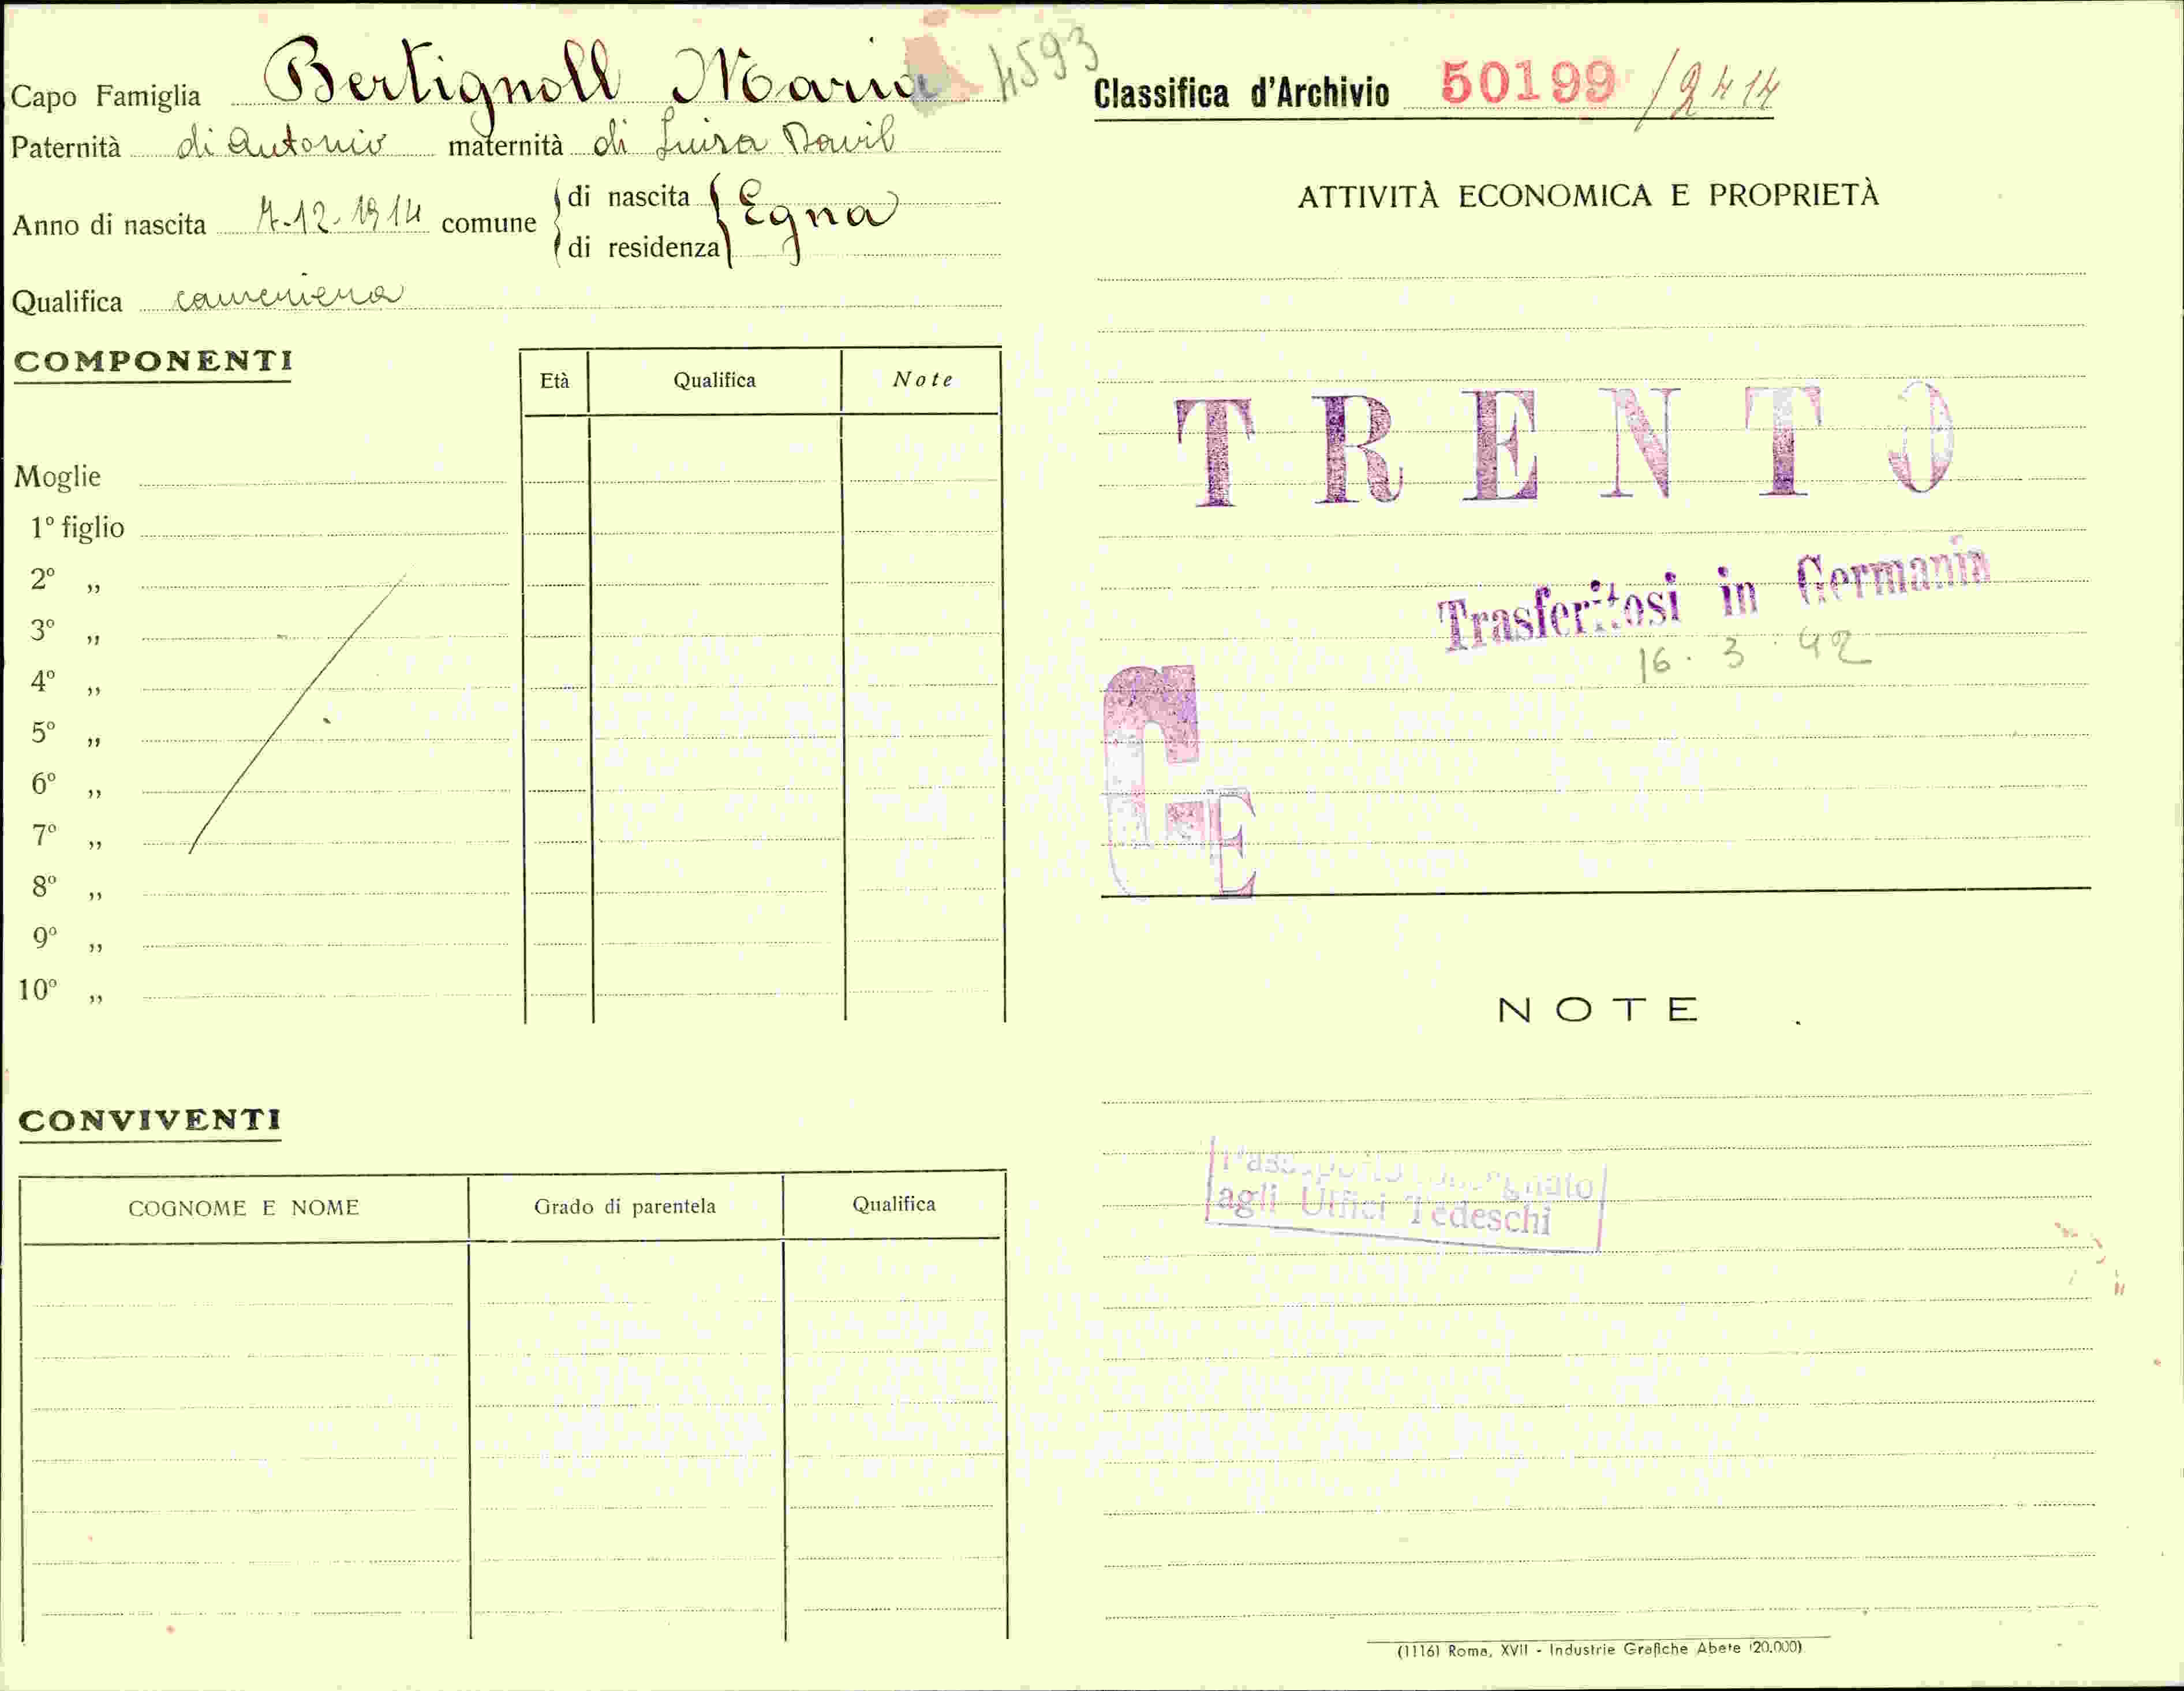 Capo Famiglia Bertignoll Maria 4593
Paternità di Antonio maternità di Luisa
Anno di nascita 7.12.1914 comune di nascita Egna
di residenza
Qualifica cameriera
COMPONENTI
Età Qualifica Note
Moglie
1º figlio
2º „
3º „
4º „
5º „
6º „
7º „
8º „
9º „
10º „
CONVIVENTI
COGNOME E NOME Grado di parentela Qualifica
Classifica d'Archivio 50199 /2414
ATTIVITÀ ECONOMICA E PROPRIETÀ
TRENTO
Trasferitosi in Germania
16.3.42
G E
NOTE
Passaporto consegnato
agli Uffici Tedeschi
(1116) Roma, XVII - Industrie Grafiche Abete (20.000)